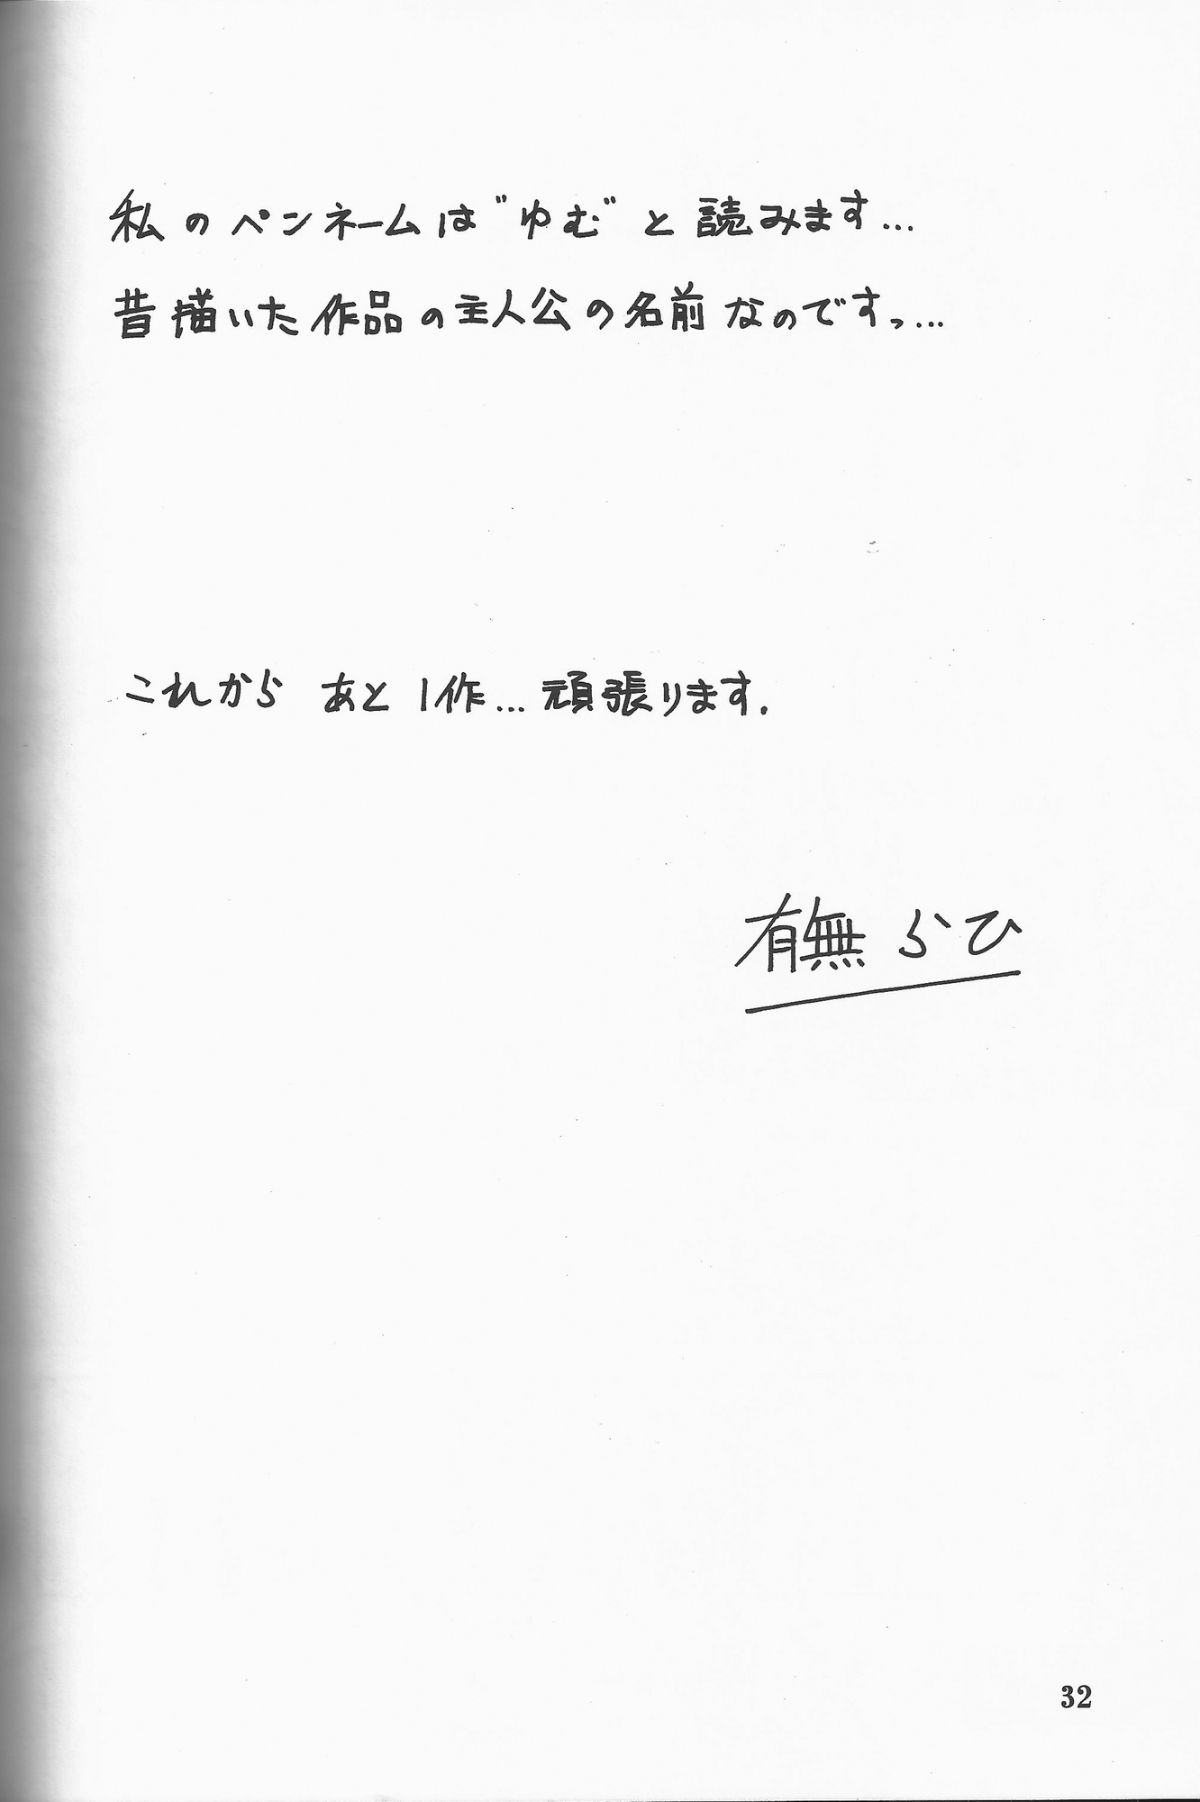 私のペンネームは"ゆむ"と読みます...
昔描いた作品の主人公の名前なのですっ...
これから あと1作...頑張ります.
有無らひ
32